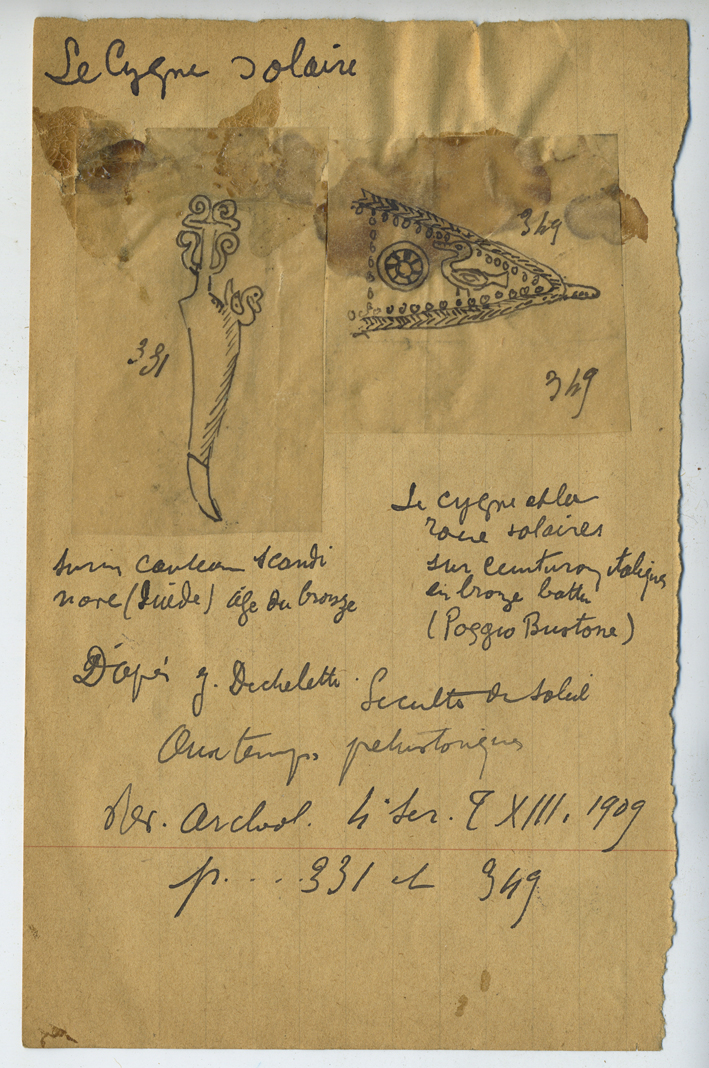 Le Cygne solaire
349
331
349
sur un couteau scandi
nave (Suède) âge du bronze
Le cygne et la
roue solaires
sur ceinturon italique
en bronze battu
(Poggio Bustone)
D'après J. Dechelette. Le culte du soleil
Aux temps préhistoriques
Rev. Archéol. 4e Ser. T XIII. 1909
p. . . . 331 et 349